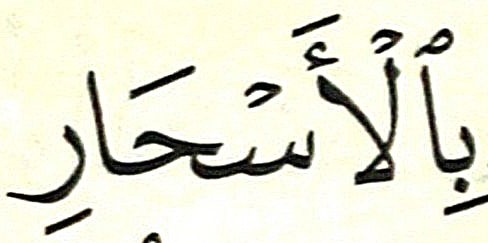 بِٱلْأَسْحَارِ